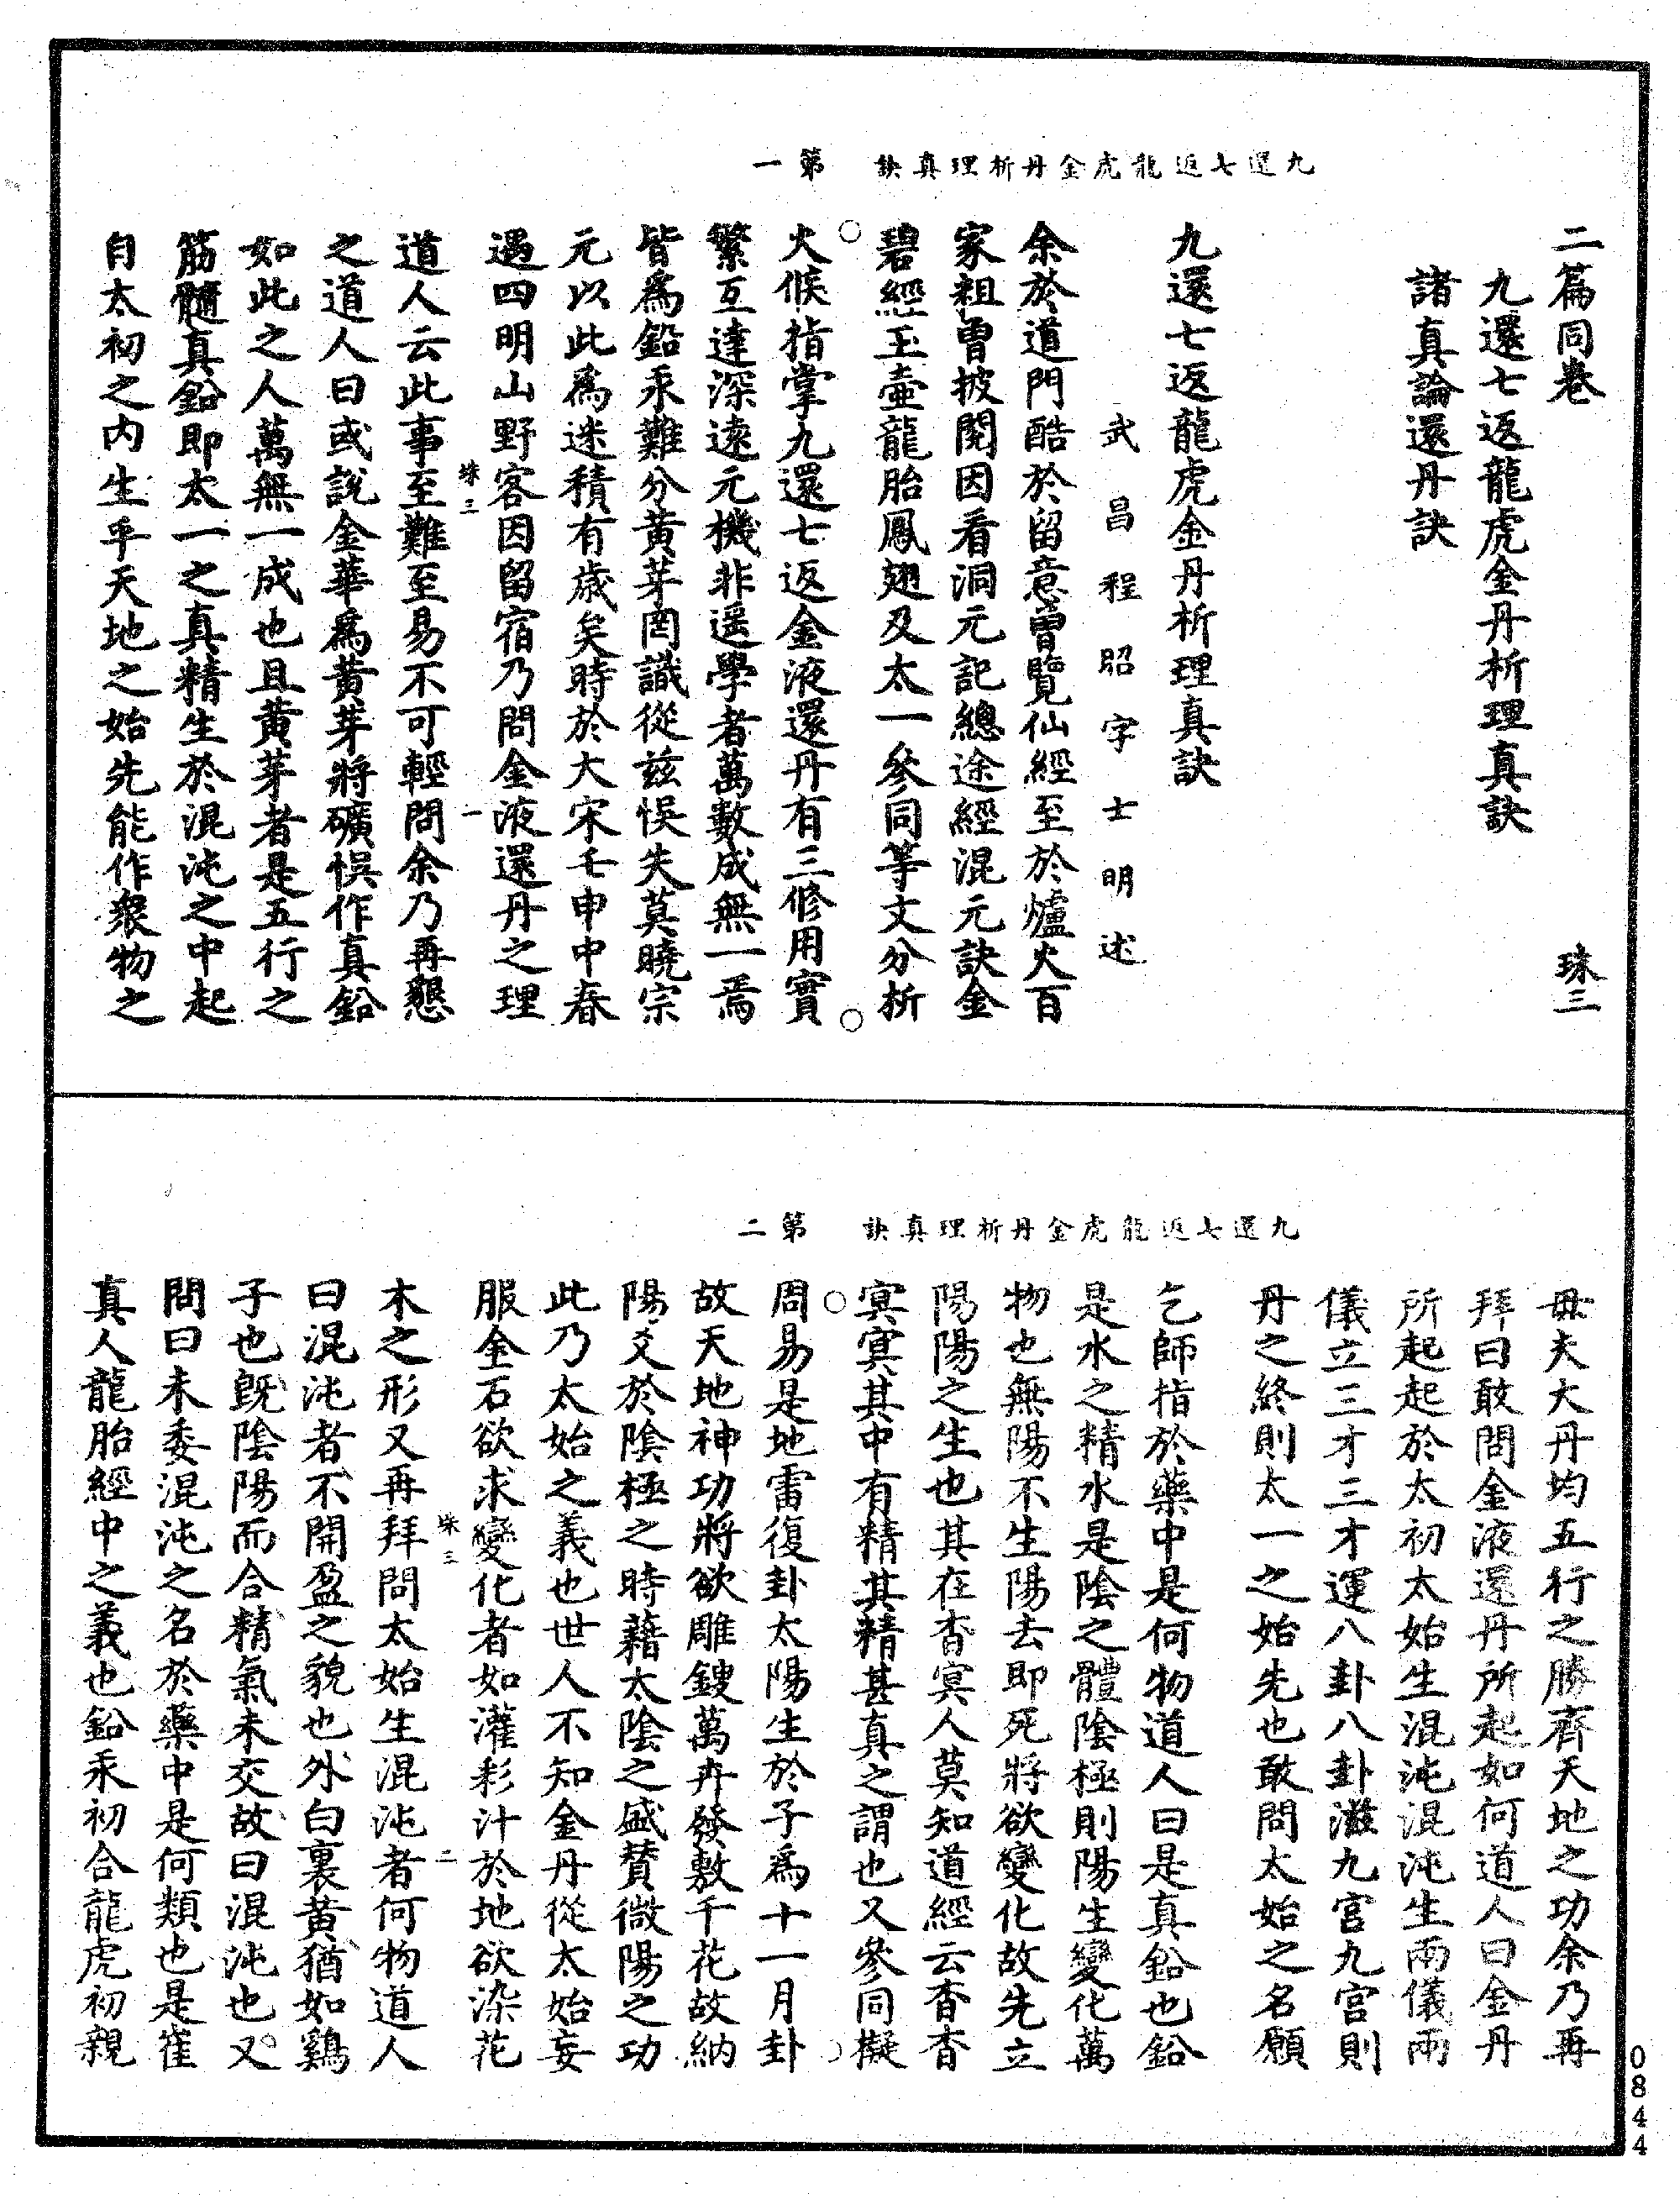 九還七返龍虎金丹析理真訣　第一
二篇同卷　珠三
九還七返龍虎金丹析理真訣
諸真論還丹訣
九還七返龍虎金丹析理真訣
武昌程昭字士明述
余於道門酷於留意曾覽仙經至於爐火百
家粗曽披閱因看洞元記總途經混元訣金
碧經玉壷龍胎鳳翅及太一參同等文分析
火候指掌九還七返金液還丹有三修用實
繁互達深遠元機非遥學者萬數成無一焉
皆爲鉛汞難分黄芽罔識從兹悮失莫曉宗
元以此爲迷積有歲矣時於大宋壬申中春
遇四明山野客因留宿乃問金液還丹之理
珠三　一
道人云此事至難至易不可輕問余乃再懇
之道人曰或說金華爲黄芽將礦悮作真鉛
如此之人萬無一成也且黄芽者是五行之
筋髓真鉛即太一之真精生於混沌之中起
自太初之内生乎天地之始先能作衆物之
九還七返龍虎金丹析理真訣　第二
毋夫大丹均五行之勝齊天地之功余乃再
拜曰敢問金液還丹所起如何道人曰金丹
所起起於太初太始生混沌混沌生兩儀兩
儀立三才三才運八卦八卦滋九宮九宮則
丹之終則太一之始先也敢問太始之名願
乞師指於藥中是何物道人曰是真鉛也鉛
是水之精水是陰之體陰極則陽生變化萬
物也無陽不生陽去即死將欲變化故先立
陽陽之生也其在杳冥人莫知道經云杳杳
冥冥其中有精其精甚真之謂也又參同擬
周易是地雷復卦太陽生於子爲十一月卦
故天地神功將欲雕鎪萬卉發敷千花故納
陽爻於陰極之時藉太陰之盛賛微陽之功
此乃太始之義也世人不知金丹從太始妄
服金石欲求變化者如灌彩汁於地欲染花
珠三　二
木之形又再拜問太始生混沌者何物道人
曰混沌者不開盈之貌也外白裏黄猶如鷄
子也旣陰陽而合精氣未交故曰混沌也又
問曰未委混沌之名於藥中是何類也是崔
真人龍胎經中之義也鉛汞初合龍虎初親
0844